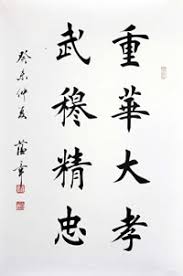 重華大孝
武穆精忠
癸未仲夏